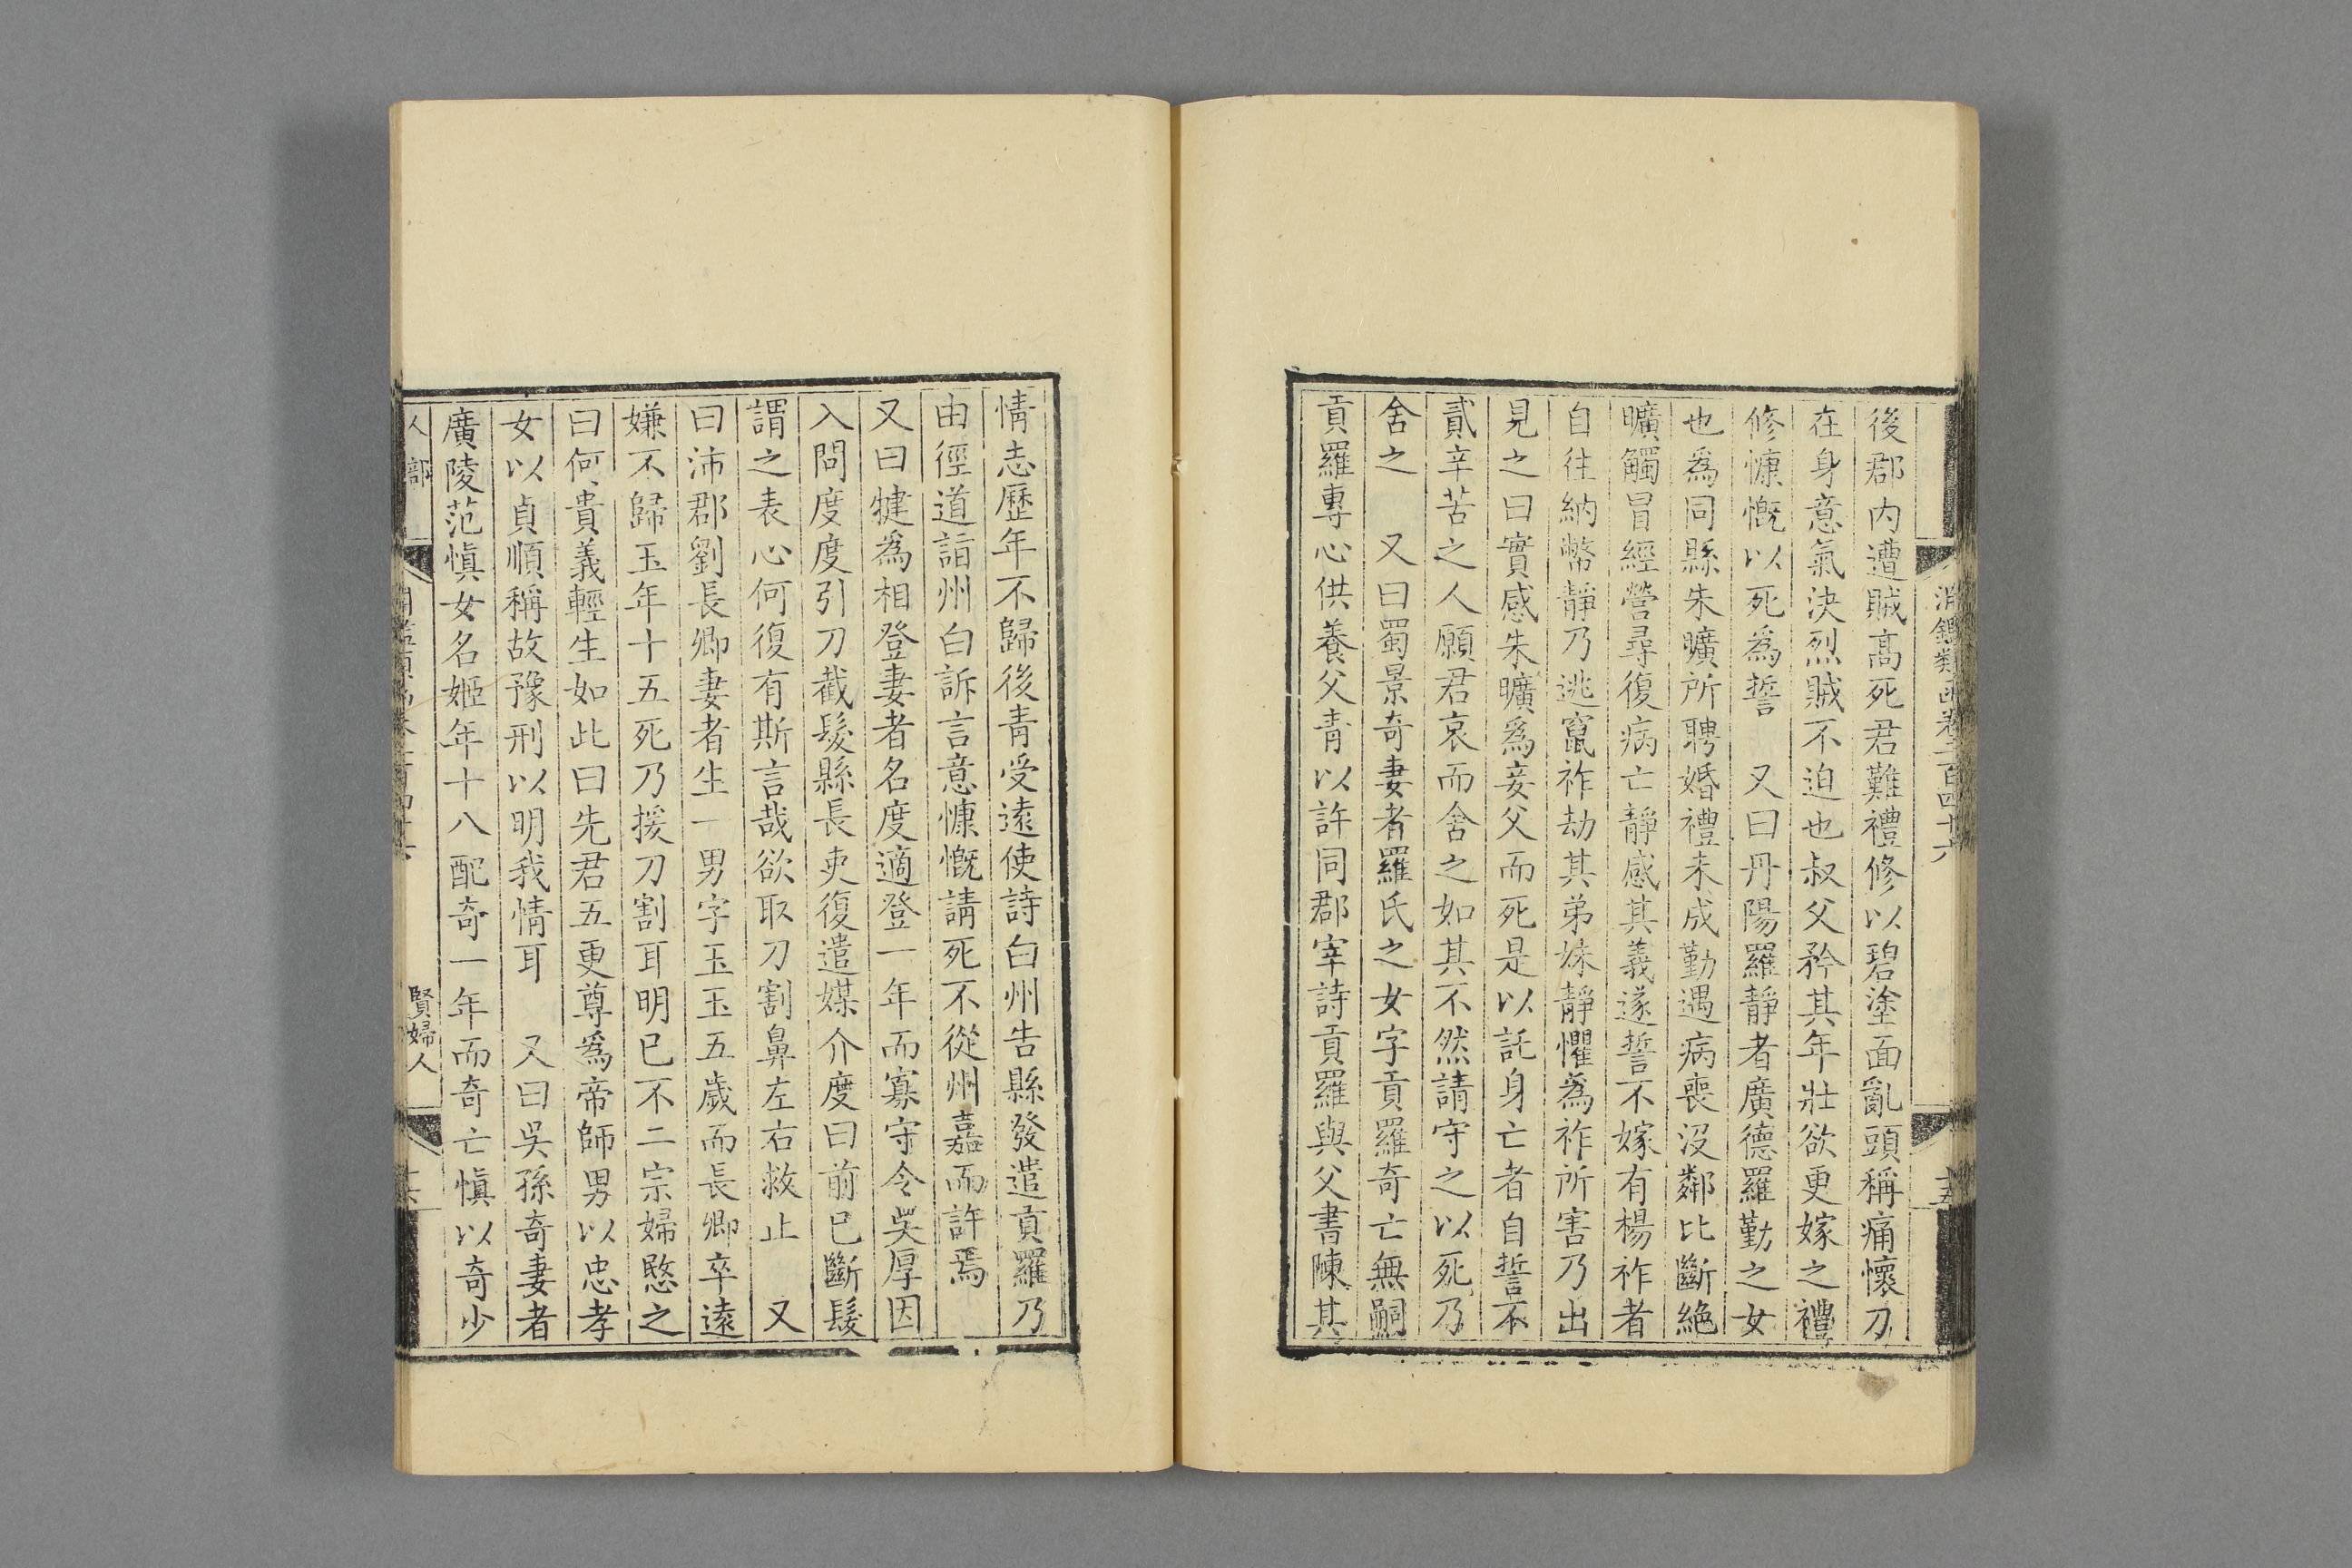 淵鑑類函卷二百四十六
十五
後郡内遭賊高死君難禮修以碧塗面亂頭稱痛懷刀
在身意氣決烈賊不迫也叔父矜其年壯欲更嫁之禮
修慷慨以死爲誓　又曰丹陽羅靜者廣德羅勤之女
也爲同縣朱曠所聘婚禮未成勤遇病喪沒鄰比斷絶
曠觸冒經營尋復病亡靜感其義遂誓不嫁有楊祚者
自往納幣靜乃逃竄祚劫其弟妹靜懼爲祚所害乃出
見之曰實感朱曠爲妾父而死是以託身亡者自誓不
貳辛苦之人願君哀而舍之如其不然請守之以死乃
舍之　又曰蜀景奇妻者羅氏之女字貢羅奇亡無嗣
貢羅專心供養父青以許同郡宰詩貢羅與父書陳其
情志歷年不歸後青受遠使詩白州告縣發遣貢羅乃
由徑道詣州白訴言意慷慨請死不從州嘉而許焉
又曰犍爲相登妻者名度適登一年而寡守令吳厚因
入問度度引刀截髮縣長吏復遣媒介度曰前已斷髮
謂之表心何復有斯言哉欲取刀割鼻左右救止　又
曰沛郡劉長卿妻者生一男字玉玉五歲而長卿卒遠
嫌不歸玉年十五死乃援刀割耳明已不二宗婦愍之
曰何貴義輕生如此曰先君五更尊爲帝師男以忠孝
女以貞順稱故豫刑以明我情耳　又曰吳孫奇妻者
廣陵范愼女名姬年十八配奇一年而奇亡愼以奇少
人部
賢婦人